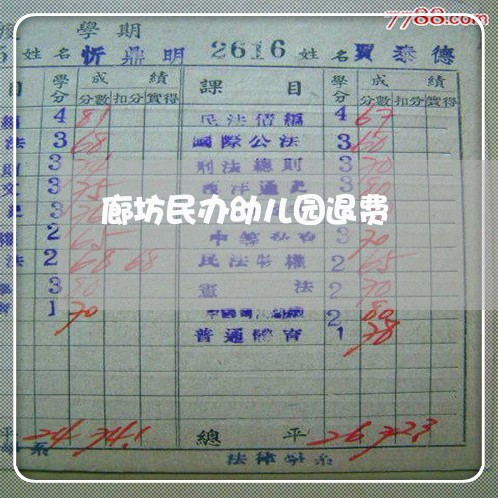 7788.com
學期
姓名 忻鼎明 2616 姓名 賈泰德
目 學分 成績 課目 學分 成績
分數 扣分 實得 分數 扣分 實得
4 81 民法債編 4 67
法 3 68 國際公法 3 60
3 刑法總則 3 70
文 3 75 西洋通史 3
廊坊民办幼儿园退费
2 65 3 70
法 2 68 68 民法物權 2 65
3 80 憲法 2 70
1 70 2 80
普通體育 1 78
平 24 74.1 總平 26 72.3
系 法律學系